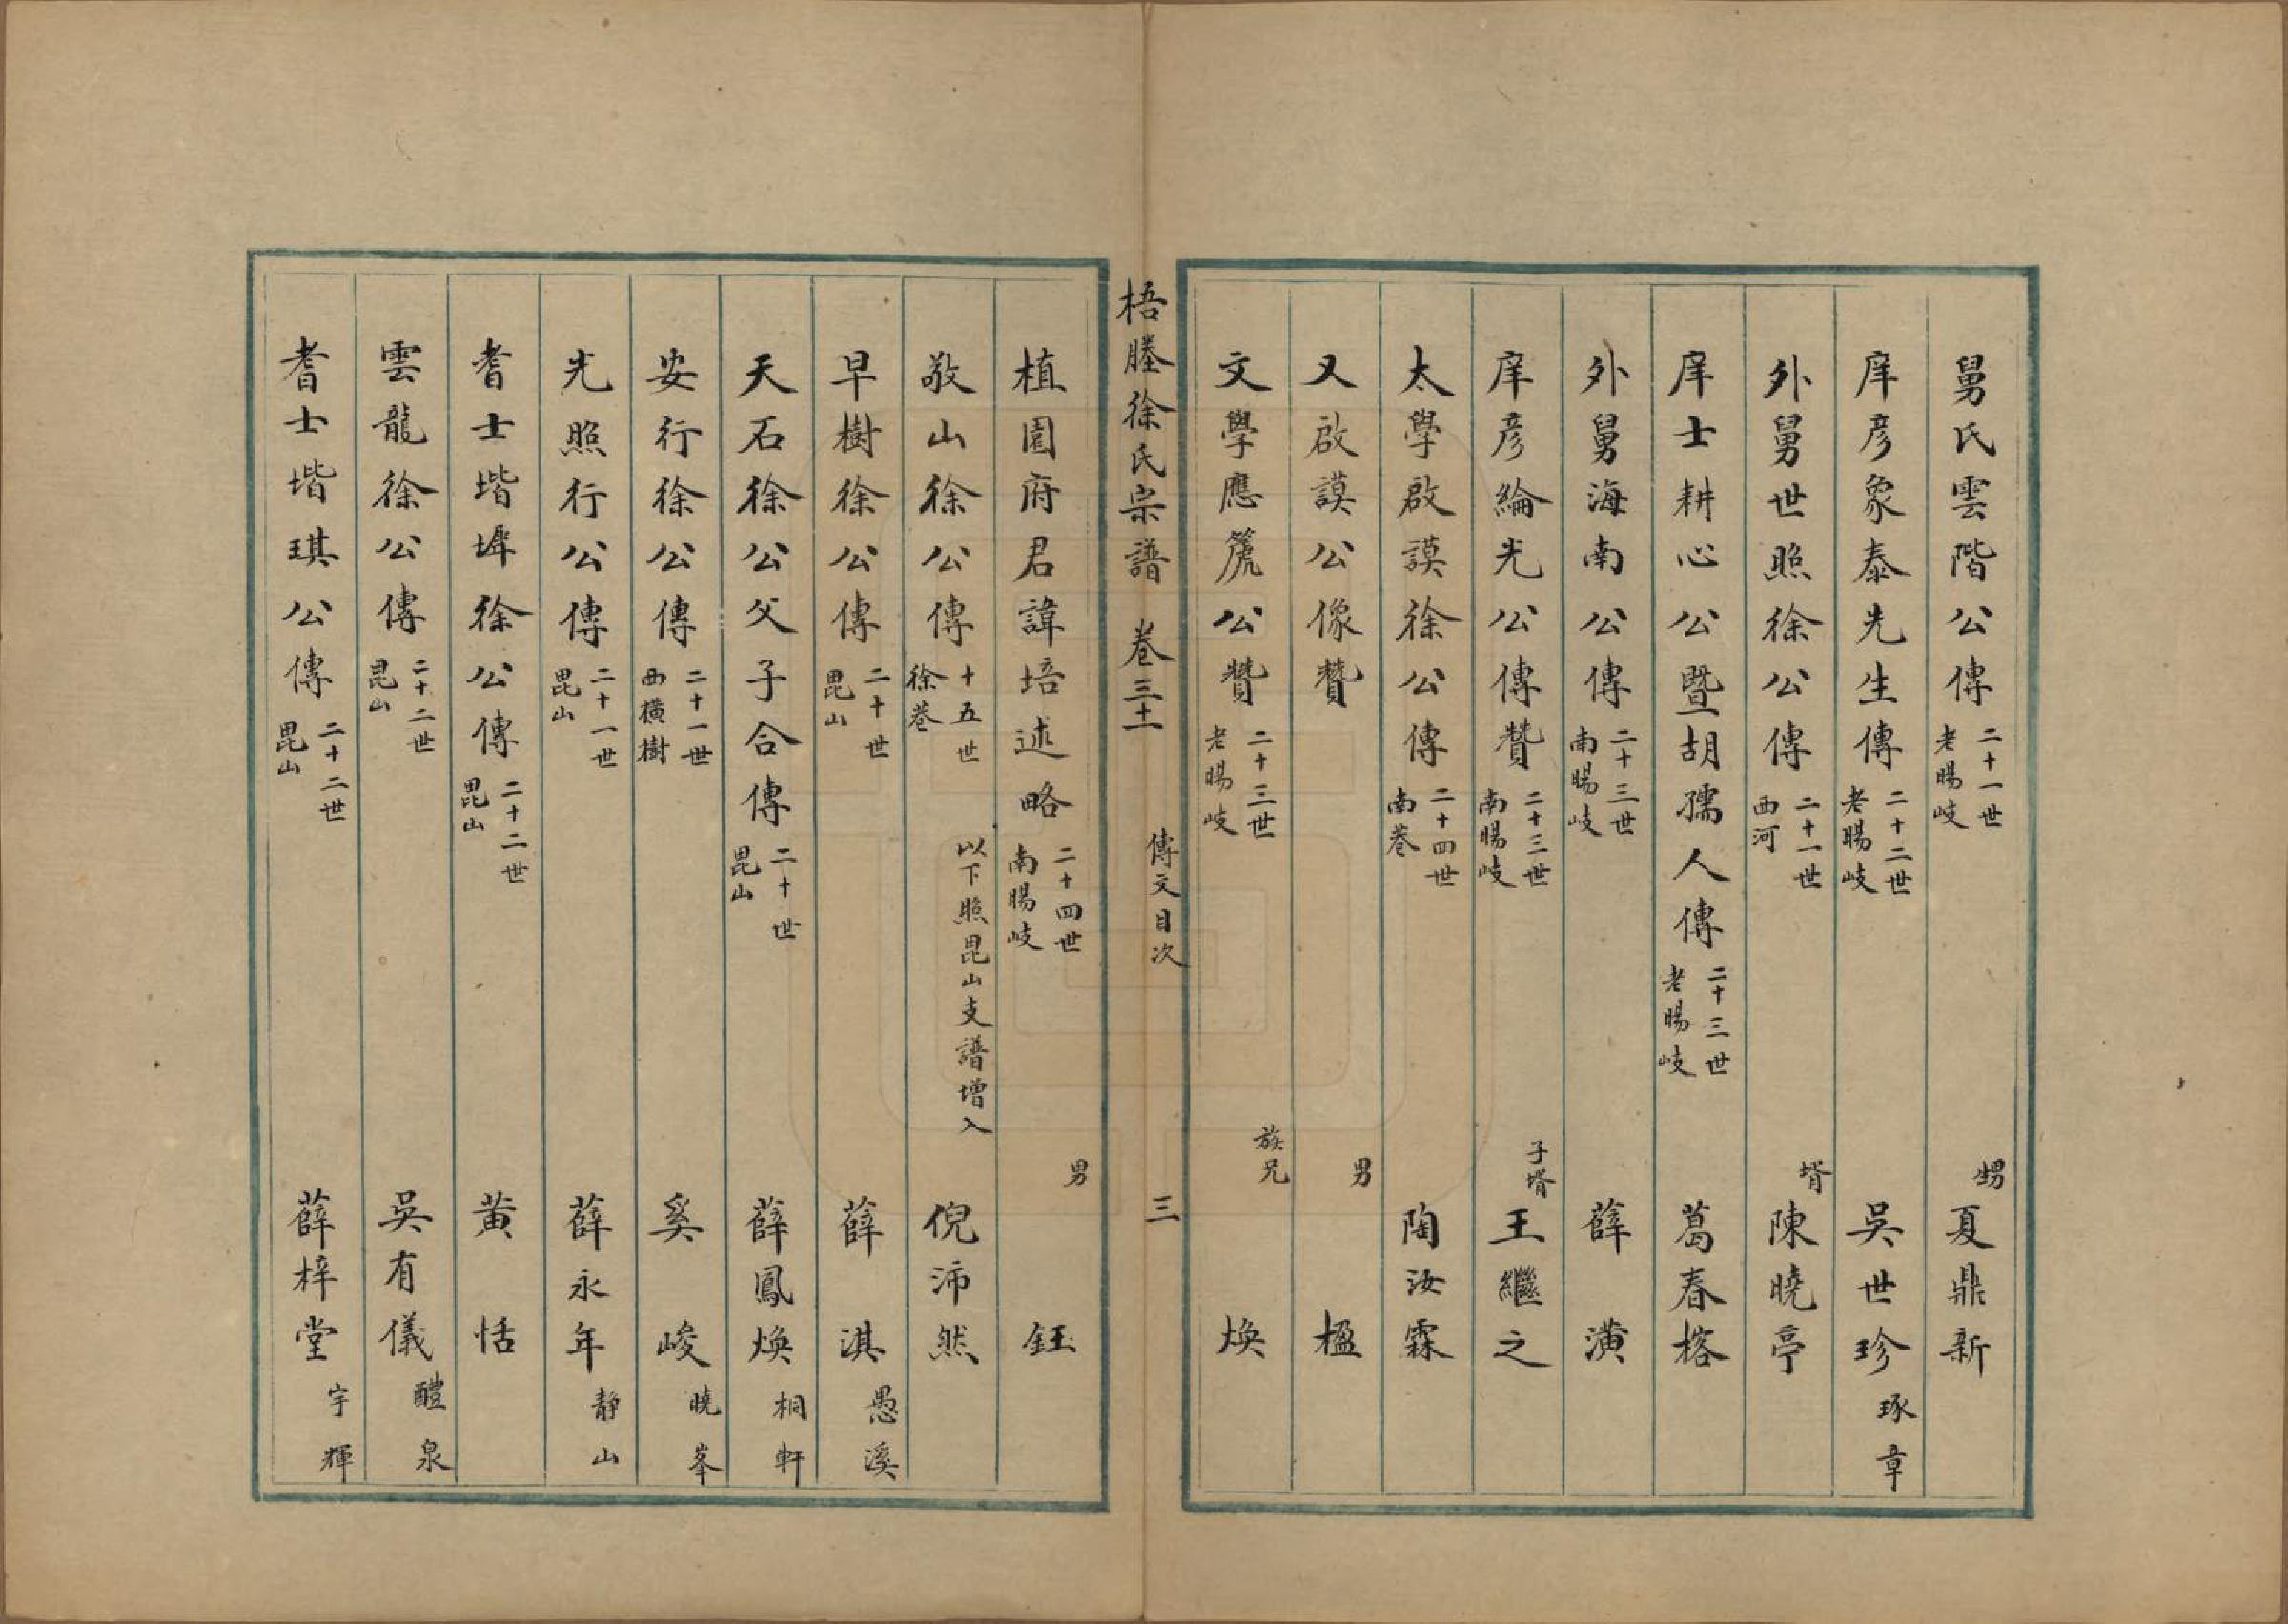 舅氏雲階公傳 二十一世 老暘岐 甥 夏鼎新
庠彥象泰先生傳 二十二世 老暘岐 吳世珍 琢章
外舅世照徐公傳 二十一世 西河 壻 陳曉亭
庠士耕心公暨胡孺人傳 二十三世 老暘岐 葛春榕
外舅海南公傳 二十三世 南暘岐 薛潢
庠彥綸光公傳贊 二十三世 南暘岐 子壻 王繼之
太學啟謨徐公傳 二十四世 南巷 陶汝霖
又啟謨公像贊 男 楹
文學應箎公贊 二十三世 老暘岐 族兄 煥
梧塍徐氏宗譜 卷三十一 傳文目次 三
植園府君諱培述略 二十四世 南暘岐 男 鈺
以下照毘山支譜增入
敬山徐公傳 十五世 徐巷 倪沛然
早樹徐公傳 二十世 毘山 薛淇 愚溪
天石徐公父子合傳 二十世 毘山 薛鳳煥 桐軒
安行徐公傳 二十一世 西橫樹 奚峻 曉峯
光照行公傳 二十一世 毘山 薛永年 靜山
耆士堦墀徐公傳 二十二世 毘山 黃恬
雲龍徐公傳 二十二世 毘山 吳有儀 醴泉
耆士堦琪公傳 二十二世 毘山 薛梓堂 宇輝